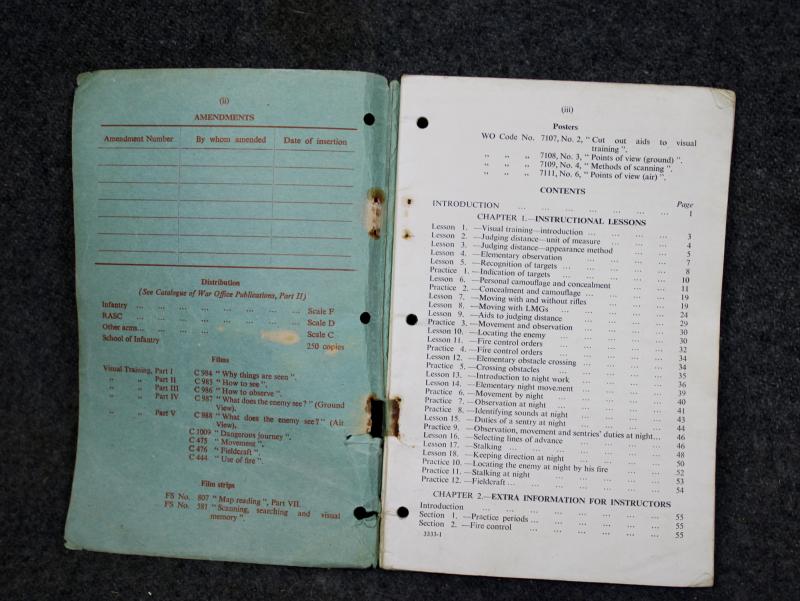 (ii)
AMENDMENTS
Amendment Number By whom amended Date of insertion
Distribution
(See Catalogue of War Office Publications, Part II)
Infantry ... ... ... ... ... ... ... Scale F
RASC ... ... ... ... ... ... ... Scale D
Other arms... ... ... ... ... ... Scale C
School of Infantry 250 copies
Films
Visual Training, Part I C 984 " Why things are seen ".
„ „ Part II C 985 " How to see ".
„ „ Part III C 986 " How to observe ".
„ „ Part IV C 987 " What does the enemy see? " (Ground
View).
„ „ Part V C 988 " What does the enemy see? " (Air
View).
C 1009 " Dangerous journey ".
C 475 " Movement ".
C 476 " Fieldcraft ".
C 444 " Use of fire ".
Film strips
FS No. 807 " Map reading ", Part VII.
FS No. 581 " Scanning, searching and visual
memory ".
(iii)
Posters
WO Code No. 7107, No. 2, " Cut out aids to visual
training ".
„ „ „ 7108, No. 3, " Points of view (ground) ".
„ „ „ 7109, No. 4, " Methods of scanning ".
„ „ „ 7111, No. 6, " Points of view (air) ".
CONTENTS
Page
INTRODUCTION ... ... ... ... ... ... ... 1
CHAPTER 1.—INSTRUCTIONAL LESSONS
Lesson 1.—Visual training—introduction ... ... ... ... 3
Lesson 2.—Judging distance—unit of measure ... ... ... 4
Lesson 3.—Judging distance—appearance method ... ... 5
Lesson 4.—Elementary observation ... ... ... ... 7
Lesson 5.—Recognition of targets ... ... ... ... 8
Practice 1.—Indication of targets ... ... ... ... 10
Lesson 6.—Personal camouflage and concealment ... ... 11
Practice 2.—Concealment and camouflage ... ... ... ... 19
Lesson 7.—Moving with and without rifles ... ... ... 19
Lesson 8.—Moving with LMGs ... ... ... ... 24
Lesson 9.—Aids to judging distance ... ... ... ... 29
Practice 3.—Movement and observation ... ... ... 30
Lesson 10.—Locating the enemy ... ... ... ... 30
Lesson 11.—Fire control orders ... ... ... ... 32
Practice 4.—Fire control orders ... ... ... ... 34
Lesson 12.—Elementary obstacle crossing ... ... ... 34
Practice 5.—Crossing obstacles ... ... ... ... 35
Lesson 13.—Introduction to night work ... ... ... 35
Lesson 14.—Elementary night movement ... ... ... 36
Practice 6.—Movement by night ... ... ... ... 39
Practice 7.—Observation at night ... ... ... ... 40
Practice 8.—Identifying sounds at night ... ... ... 41
Lesson 15.—Duties of a sentry at night ... ... ... 43
Practice 9.—Observation, movement and sentries' duties at night... 44
Lesson 16.—Selecting lines of advance ... ... ... 46
Lesson 17.—Stalking ... ... ... ... ... 46
Lesson 18.—Keeping direction at night ... ... ... 48
Practice 10.—Locating the enemy at night by his fire ... ... 50
Practice 11.—Stalking at night ... ... ... ... 52
Practice 12.—Fieldcraft ... ... ... ... ... 53
54
CHAPTER 2.—EXTRA INFORMATION FOR INSTRUCTORS
Introduction ... ... ... ... ... ... 55
Section 1.—Practice periods ... ... ... ... ... 55
Section 2.—Fire control ... ... ... ... ... 55
3233-1